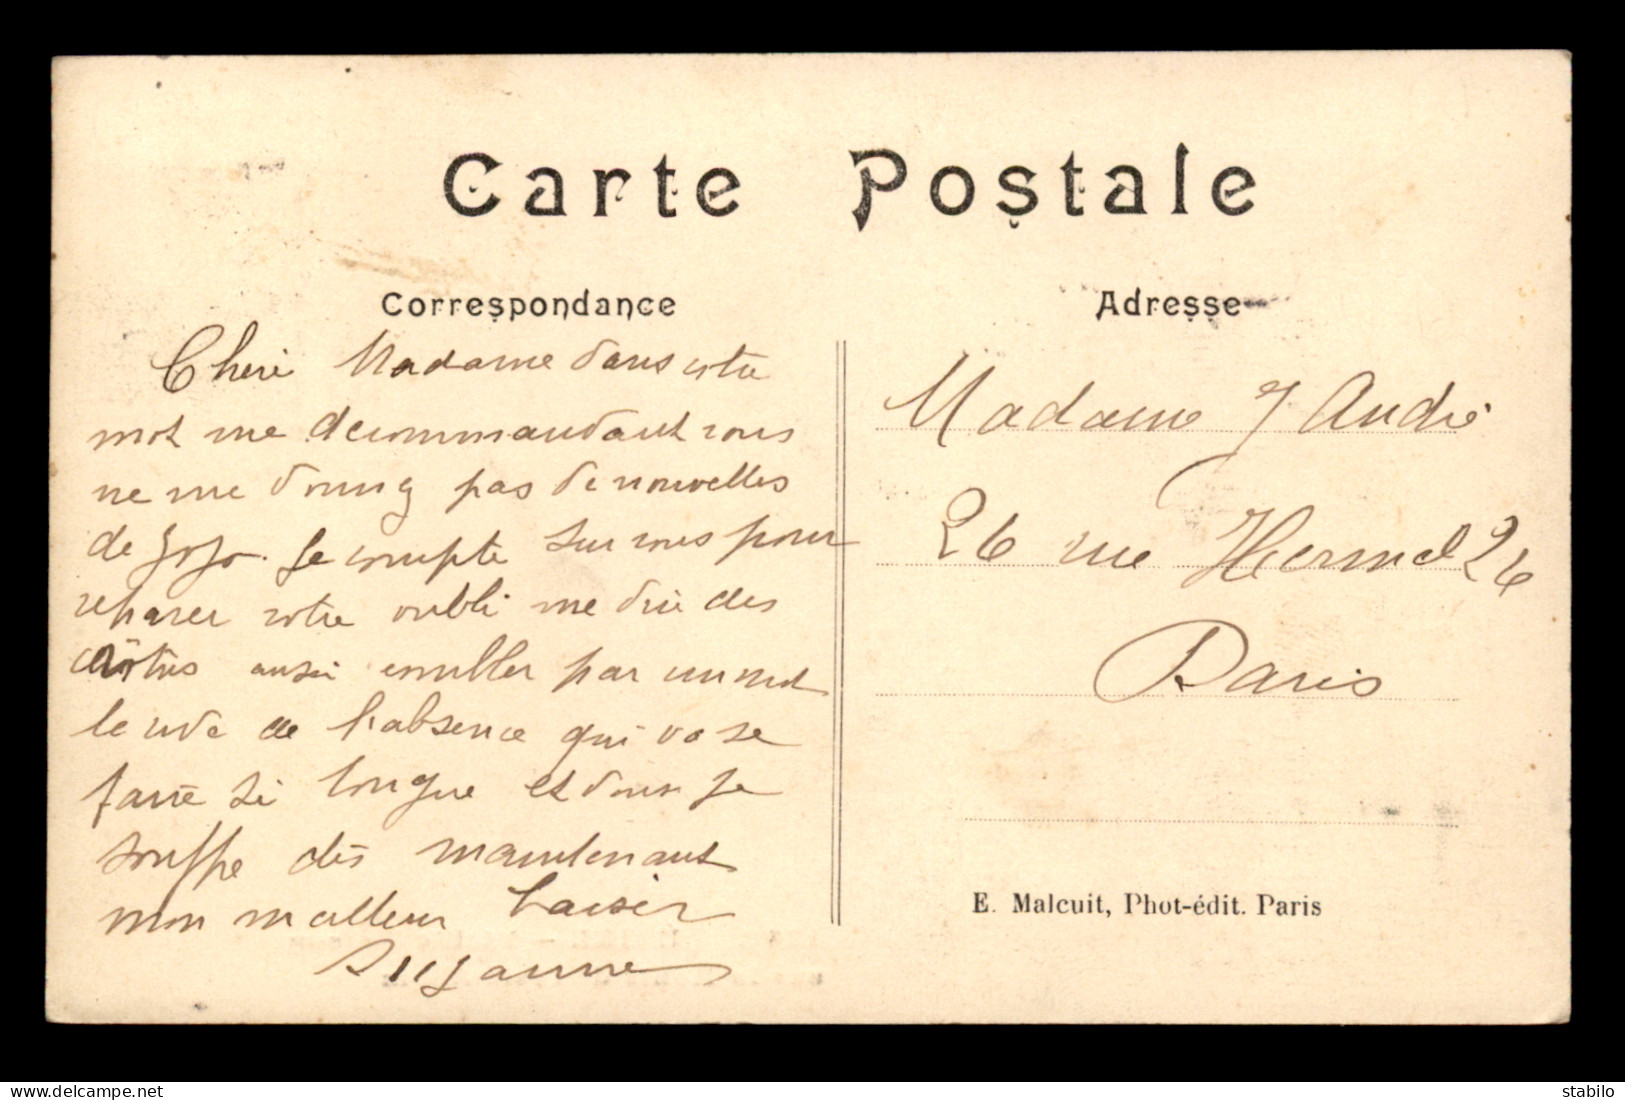 Carte Postale
Correspondance
Adresse
Cheri Madame dans votre
mot me decommandant vous
ne me donnez pas de nouvelles
de Jojo. Je compte sur vous pour
reparer votre oubli me dire des
aussi combler par un mot
le vide de l'absence qui va se
faire si longue et dont je
souffre dès maintenant
mon meilleur baiser
Suzanne
Madame J André
26 rue Hermel 26
Paris
E. Malcuit, Phot-édit. Paris
stabilo